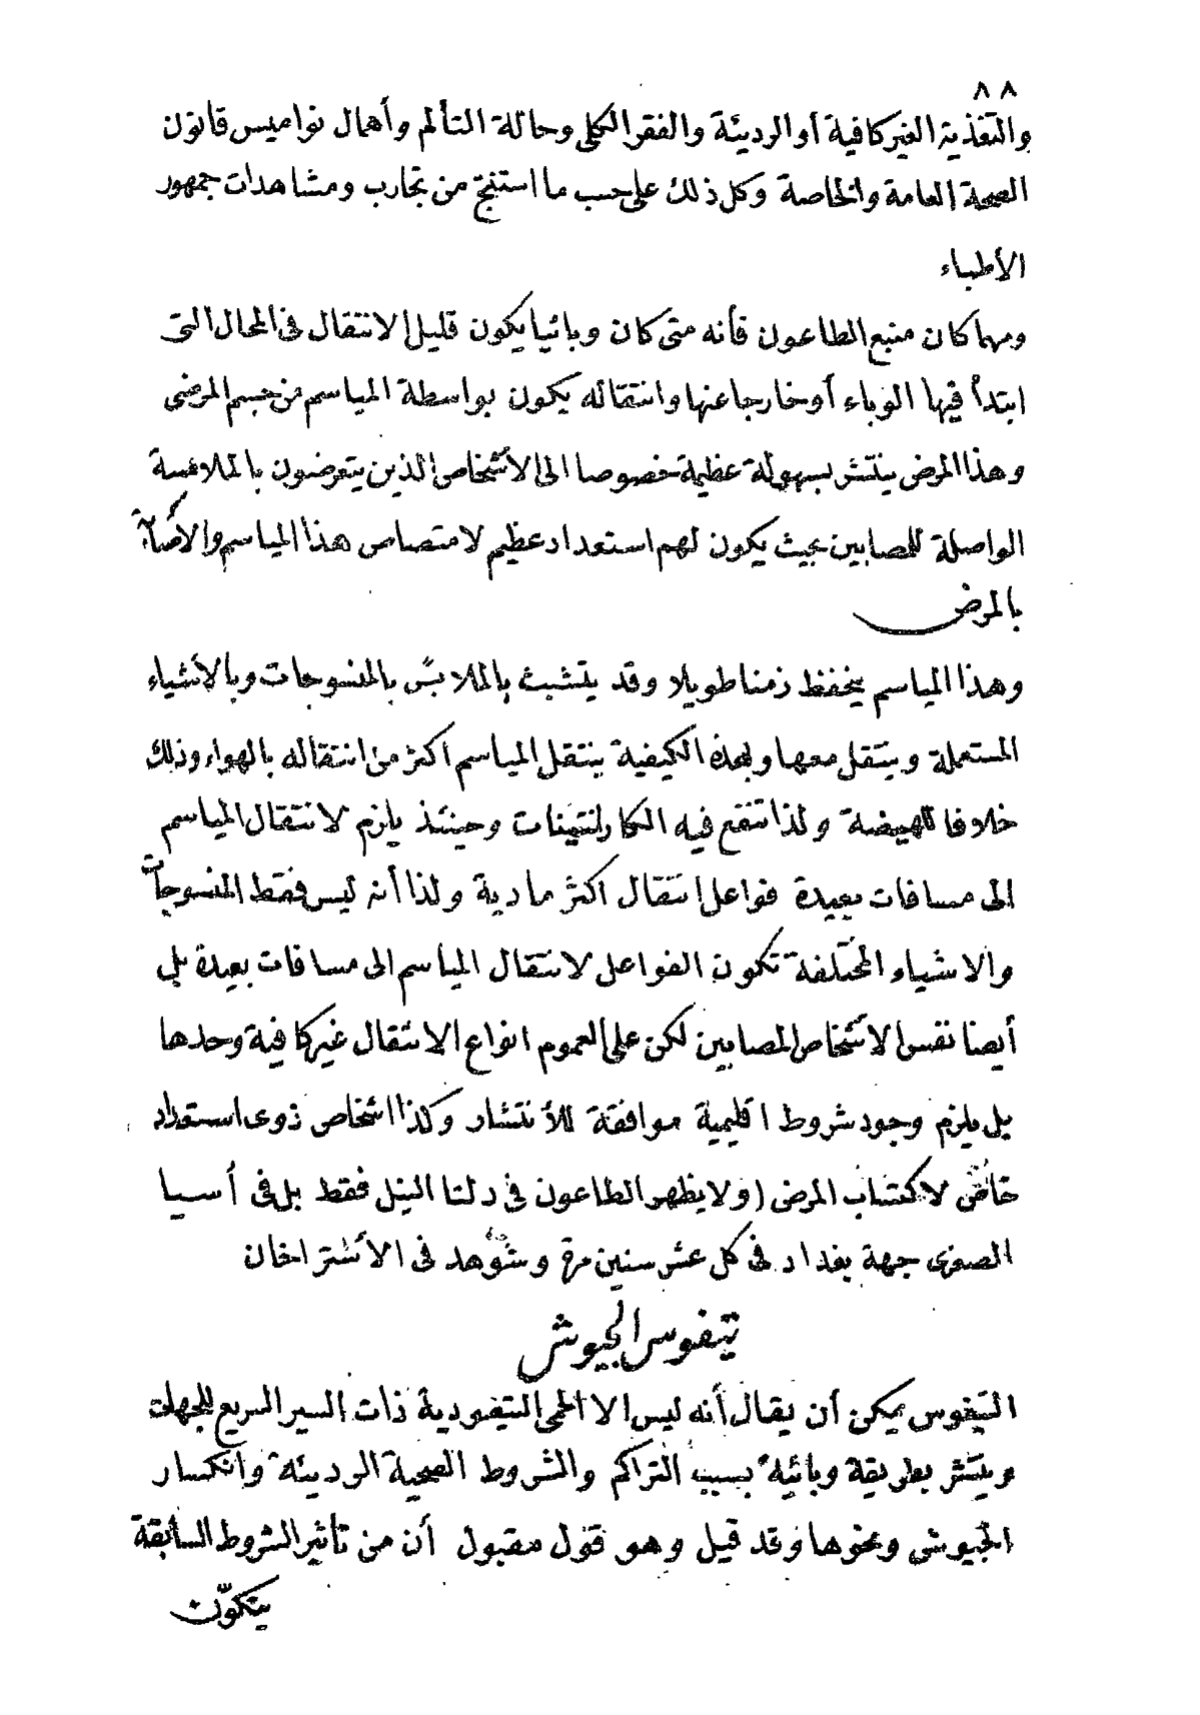 ٨٨
والتغذية الغير كافية أو الرديئة والفقر الكلى وحالة التألم وأهمال نواميس قانون
الصحة العامة والخاصة وكل ذلك على حسب ما استنتج من تجارب ومشاهدات جمهور
الأطباء
ومهما كان منبع الطاعون فأنه متى كان وبائيا يكون قليل الانتقال فى المحال التى
ابتدأ فيها الوباء أو خارجا عنها وانتقاله يكون بواسطة المياسم من جسم المرضى
وهذا المرض ينتشر بسهولة عظيمة خصوصا الى الأشخاص الذين يتعرضون بالملامسة
الواصلة للمصابين بحيث يكون لهم استعداد عظيم لامتصاص هذا المياسم والاصابة
بالمرض
وهذا المياسم يحفظ زمنا طويلا وقد يتشبث بالملابس بالمنسوجات وبالأشياء
المستعملة وينتقل معها وبهذه الكيفية ينتقل المياسم اكثر من انتقاله بالهواء وذلك
خلافا للهيضة ولذا تنفع فيه الكارنتينات وحينئذ يلزم لانتقال المياسم
الى مسافات بعيدة فواعل انتقال اكثر مادية ولذا أنه ليس فقط المنسوجات
والاشياء المختلفة تكون الفواعل لانتقال المياسم الى مسافات بعيدة بل
أيضا نفس الاشخاص المصابين لكن على العموم انواع الانتقال غير كافية وحدها
بل يلزم وجود شروط اقليمية موافقة للأنتشار وكذا اشخاص ذوى استعداد
خاص لاكتساب المرض (ولا يظهر الطاعون فى دلتا النيل فقط بل فى أسيا
الصغرى جهة بغداد فى كل عشر سنين مرة وشوهد فى الأشتراخان
تيفوس الجيوش
التيفوس يمكن أن يقال أنه ليس الا الحمى التيفودية ذات السير السريع للجهات
وينتشر بطريقة وبائية بسبب التراكم والشروط الصحية الرديئة وانكسار
الجيوش ونحوها وقد قيل وهو قول مقبول أن من تأثير الشروط السابقة
يتكوّن